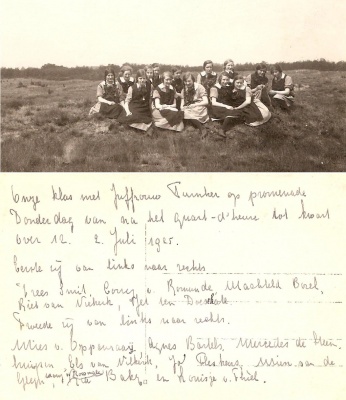 Onze klas met Juffrouw Turnker op promenade
Donderdag van na het quart-d'heure tot kwart
over 12. 2 Juli 1925.
Eerste rij van links naar rechts
Trees Smit, Corry v. Roemunde Machteld Borel,
Riet van Niekerk, Jet ten
Tweede rij van links naar rechts.
Mies v. Agnes Bartels, Mercedes de
huijsen, Els van Niekerk, Jo Mien van de
Bakx en Louisje v. Thiel.